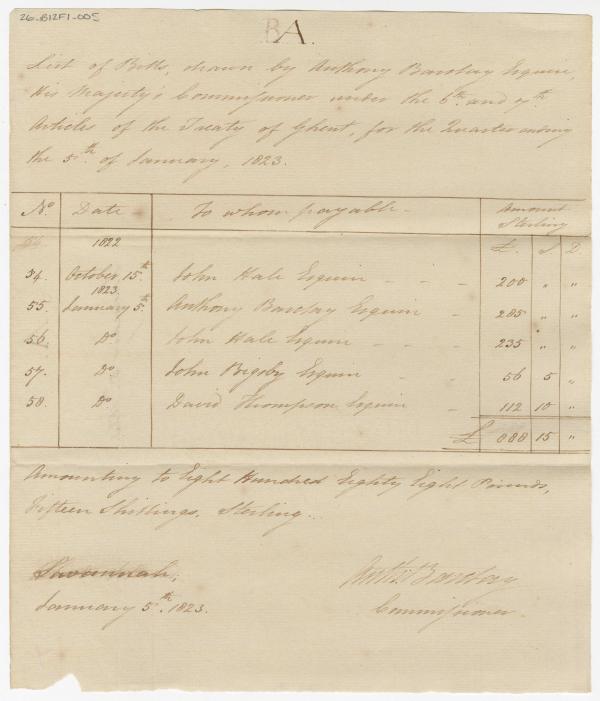 26-B12F1-005
BA.
List of Bills, drawn by Anthony Barclay Esquire,
His Majesty's Commissioner under the 6th and 7th
Articles of the Treaty of Ghent, for the Quarter ending
the 5th of January, 1823.
No. Date To whom payable. Amount Sterling
1822 £. S D.
54. October 15th John Hale Esquire - - - 200 " "
1823
55. January 5th Anthony Barclay Esquire - 285 " "
56. Do John Hale Esquire - - - 235 " "
57. Do John Bigsby Esquire - - 56 5 "
58. Do David Thompson Esquire - 112 10 "
£ 888 15 "
Amounting to Eight Hundred Eighty Eight Pounds,
Fifteen Shillings, Sterling.
Savannah,
January 5th 1823.
Anth: Barclay
Commissioner.